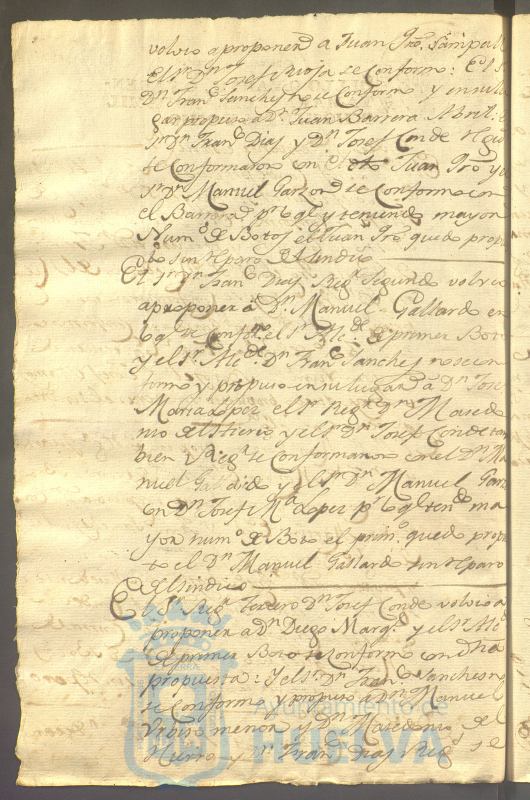 volvio a proponer a Juan
El Sr Dn Josef Rioja se Conformo: El S
Dn Franco Sanches no se Conformo y en su lu
gar propuso a Dn Juan Barrera Abril:
Dn Franco Dias y Dn Josef Conde
se Conformaron en el Juan
Dn Manuel Garzon se Conformo en
el Barrera pr lo ql y teniendo mayor
Numo de Botos el Juan quedo propu
to sin reparo del Sindico
El Sr Dn Franco Dias Regr Segundo volvio
a proponer a Dn Manuel Gallardo en
lo ql se Conformo el Sr Alcde de primer Boto
y el Sr Alcde Dn Franco Sanches no se con
formo y propuso en su lugar a Dn Josef
Maria Lopez el Sr Regr Dn Macedo
nio del Hierro y el Sr Dn Josef Conde tam
bien Regr se Conformaron en el Dn Ma
nuel Gallardo y el Sr Dn Manuel Garz
en Dn Josef Ma Lopez pr lo ql tendo ma
yor numo de Boto el primo quedo propu
to el Dn Manuel Gallardo sin reparo
del Sindico
El Sr Regr Tercero Dn Josef Conde volvio a
proponer a Dn Diego Marqz y el Sr Alcde
de primer Boto se Conformo con dha
propuesta: Y el Sr Dn Franco Sanches no
se Conformo y propuso a Dn Manuel
menor y Dn Macedonio del
Hierro y Dn Franco Dias Regs se
Ayuntamiento de
HUELVA